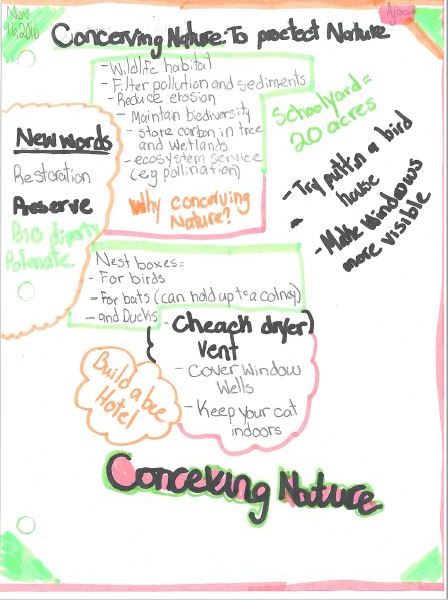 Nov
16, 2016
Ajao
Concerving Nature: To proctect Nature
- Wildlife habitat
- Filter pollution and sediments
- Reduce erosion
- Maintain biodiversity
- store carbon in tree
and Wetlands
- ecosystem service
(eg pollination)
Why concerving
Nature?
Schoolyard=
20 acres
- Try puttin a bird
house
- Make windows
more visible
New words
Restoration
Preserve
Nest boxes=
- For birds
- For bats (can hold up to a colnoy)
- and Ducks
- Cheack dryer
vent
- Cover Window
Wells
- Keep your cat
indoors
Build a bee
Hotel
Conceving Nature